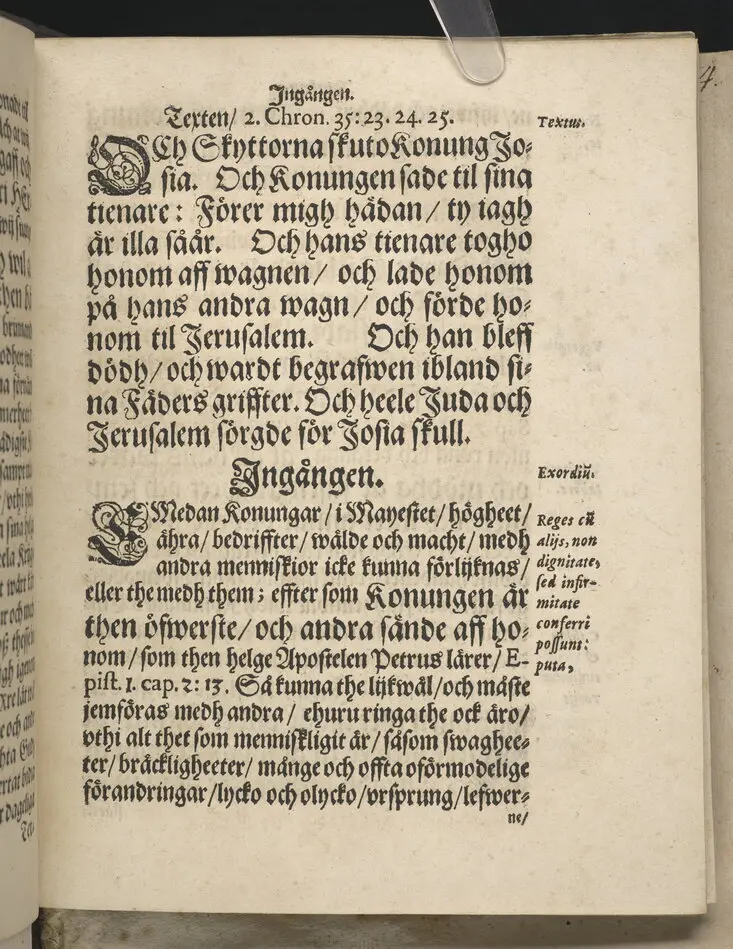 Ingången.
Texten/ 2. Chron. 35:23. 24. 25.
Textus.
OCh Skyttorna skuto Konung Jo-
sia. Och Konungen sade til sina
tienare: Förer migh hådan/ ty iagh
är illa såår. Och hans tienare togho
honom aff wagnen/ och lade honom
på hans andra wagn/ och förde ho-
nom til Jerusalem. Och han bleff
dödh/ och wardt begrafwen ibland si-
na Fäders griffter. Och heele Juda och
Jerusalem sörgde för Josia skull.
Ingången.
Exordiū.
EMedan Konungar/ i Mayestet/ högheet/
ähra/ bedriffter/ wälde och macht/ medh
andra menniskior icke kunna förlijknas/
eller the medh them; effter som Konungen är
then öfwerste/ och andra sände aff ho-
nom/ som then helge Apostelen Petrus lärer/ E-
pist. 1. cap. 2: 13. Så kunna the lijkwäl/ och måste
jemföras medh andra/ ehuru ringa the ock äro/
vthi alt thet som menniskligit är/ såsom swaghee-
ter/ bräckligheeter/ månge och offta oförmodelige
förandringar/ lycko och olycko/ vrsprung/ lefwer-
ne/
Reges cū
alijs, non
dignitate,
sed infir-
mitate
conferri
possunt:
puta,
4.